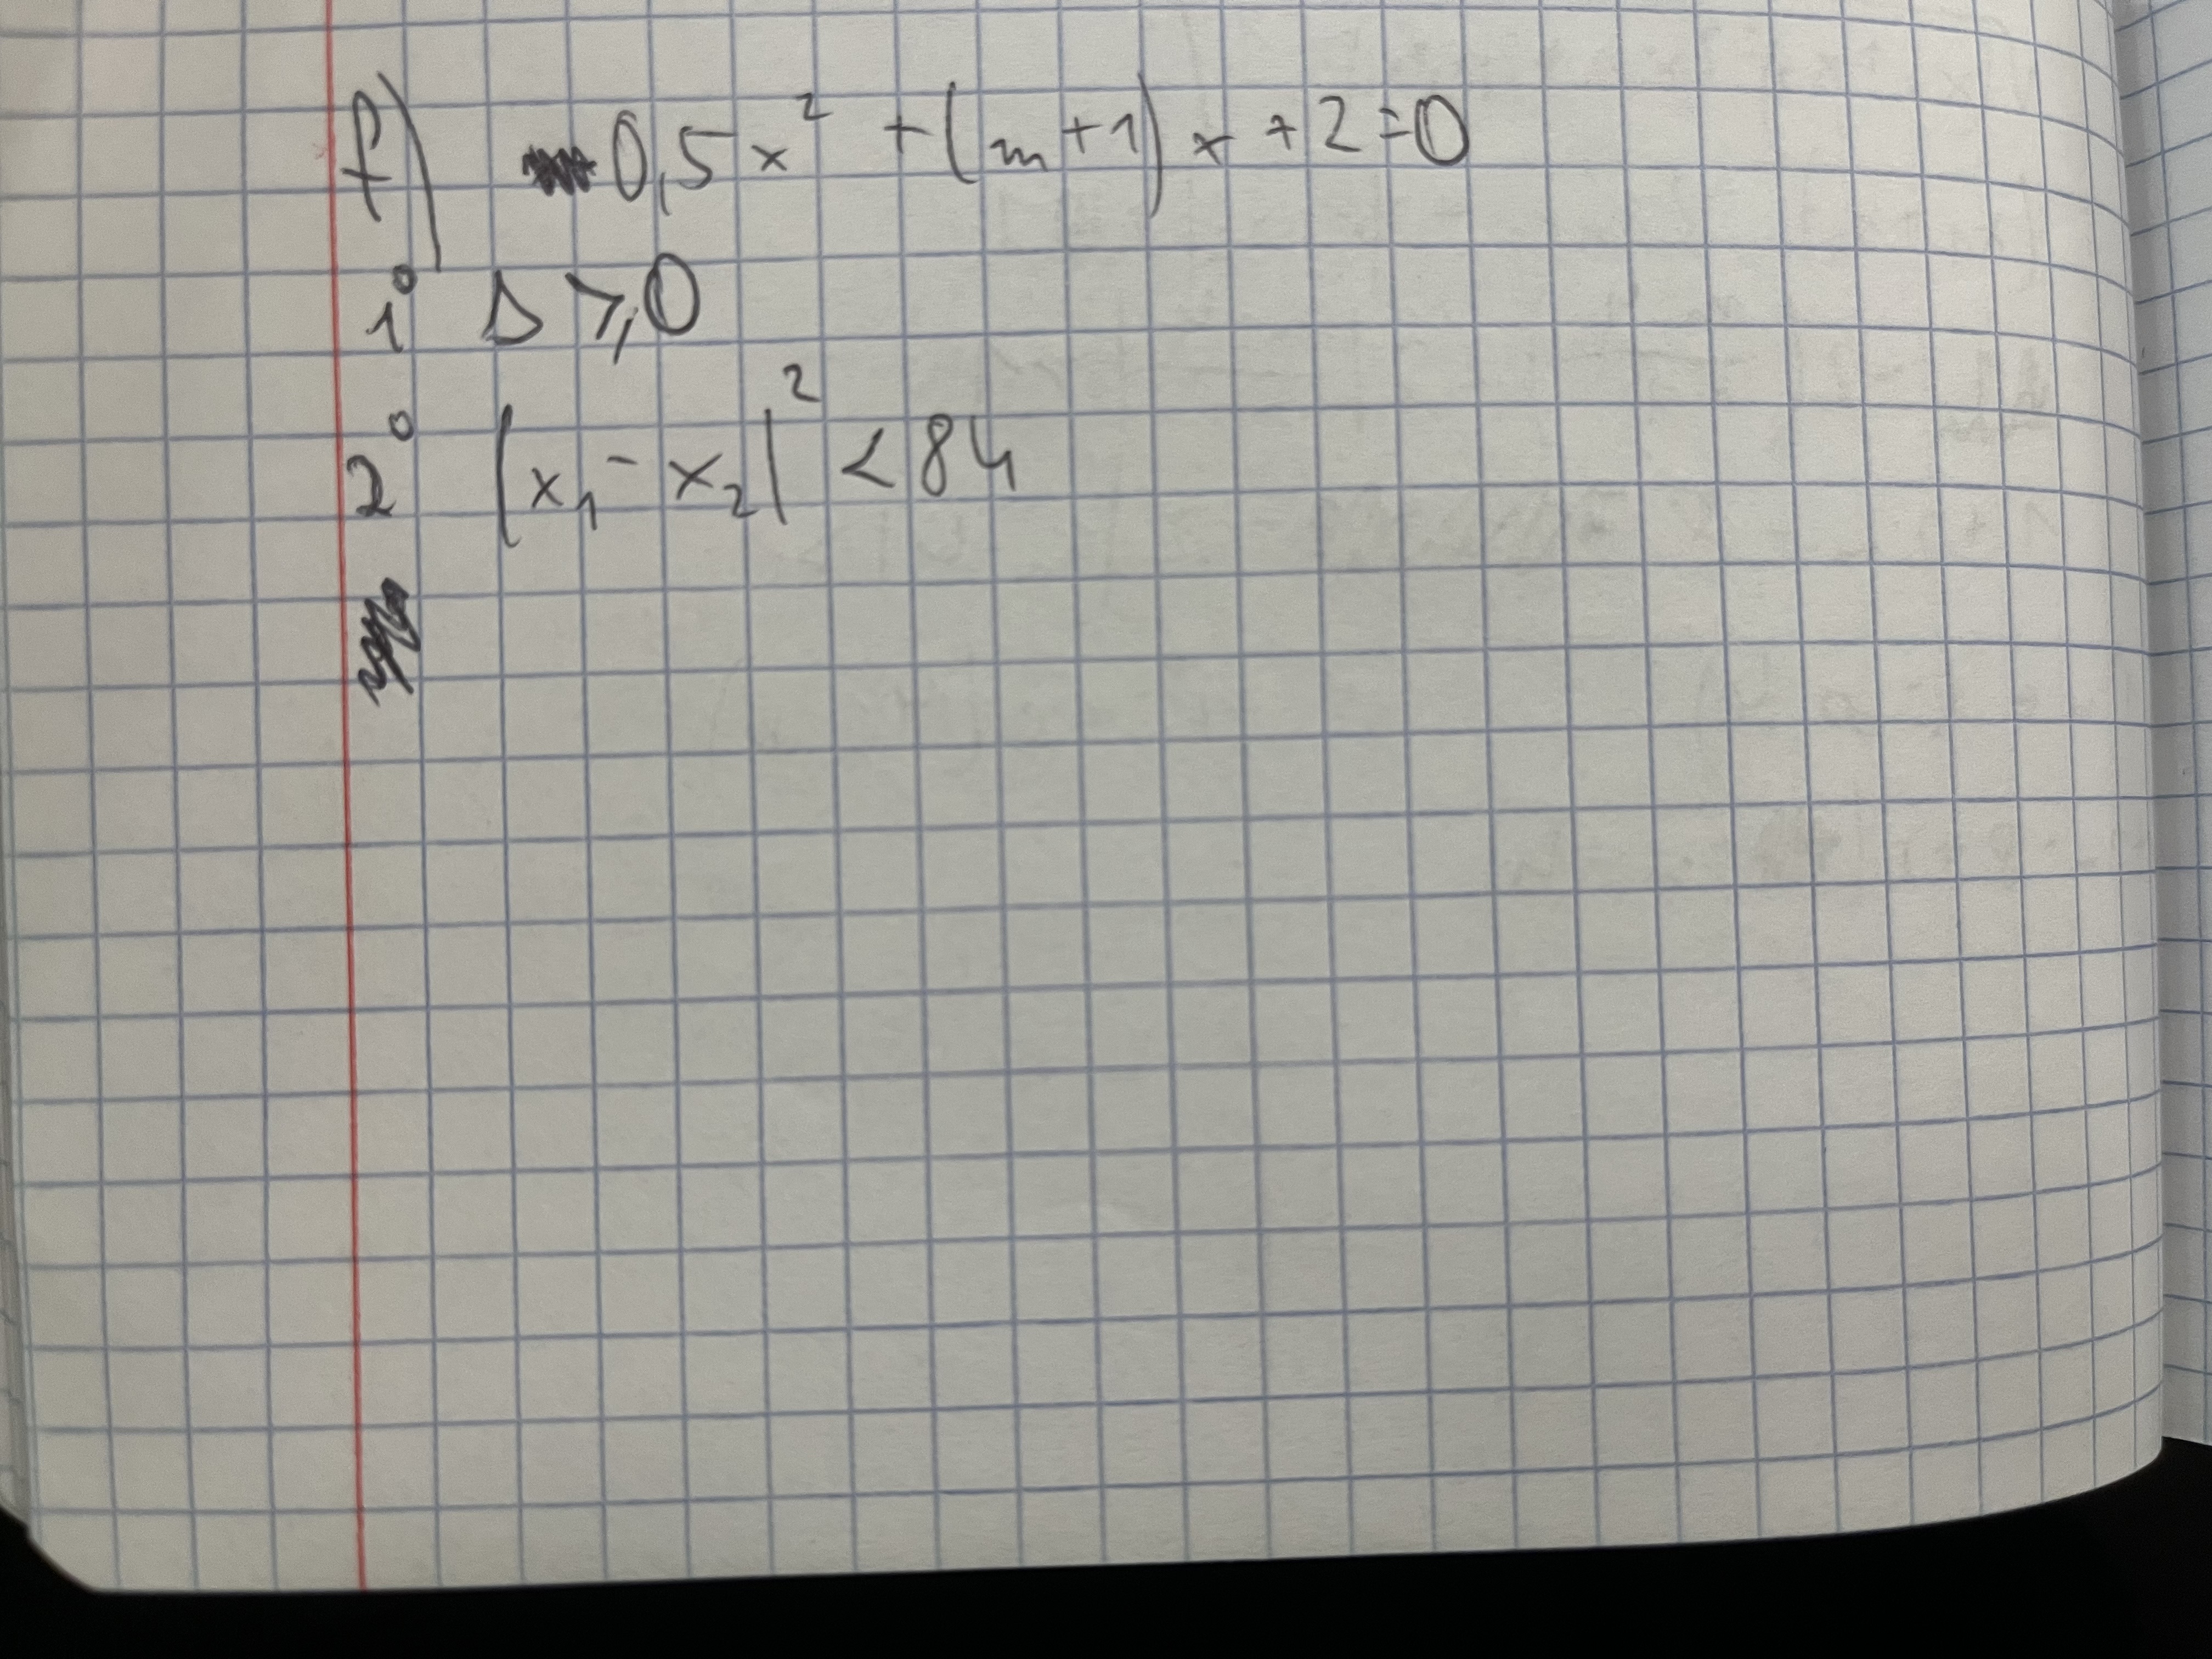 f) 0,5x² + (m+1)x + 2 = 0
1° Δ ⩾ 0
2° |x₁ - x₂|² < 84